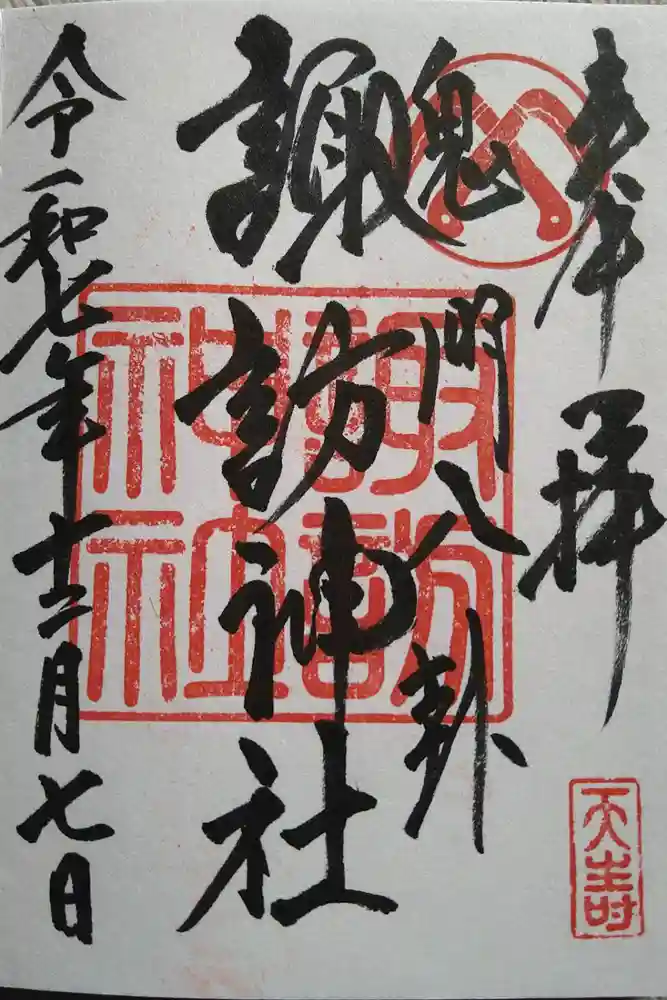 奉拝
鬼門八卦
諏訪神社
令和七年十二月七日
諏訪
神社